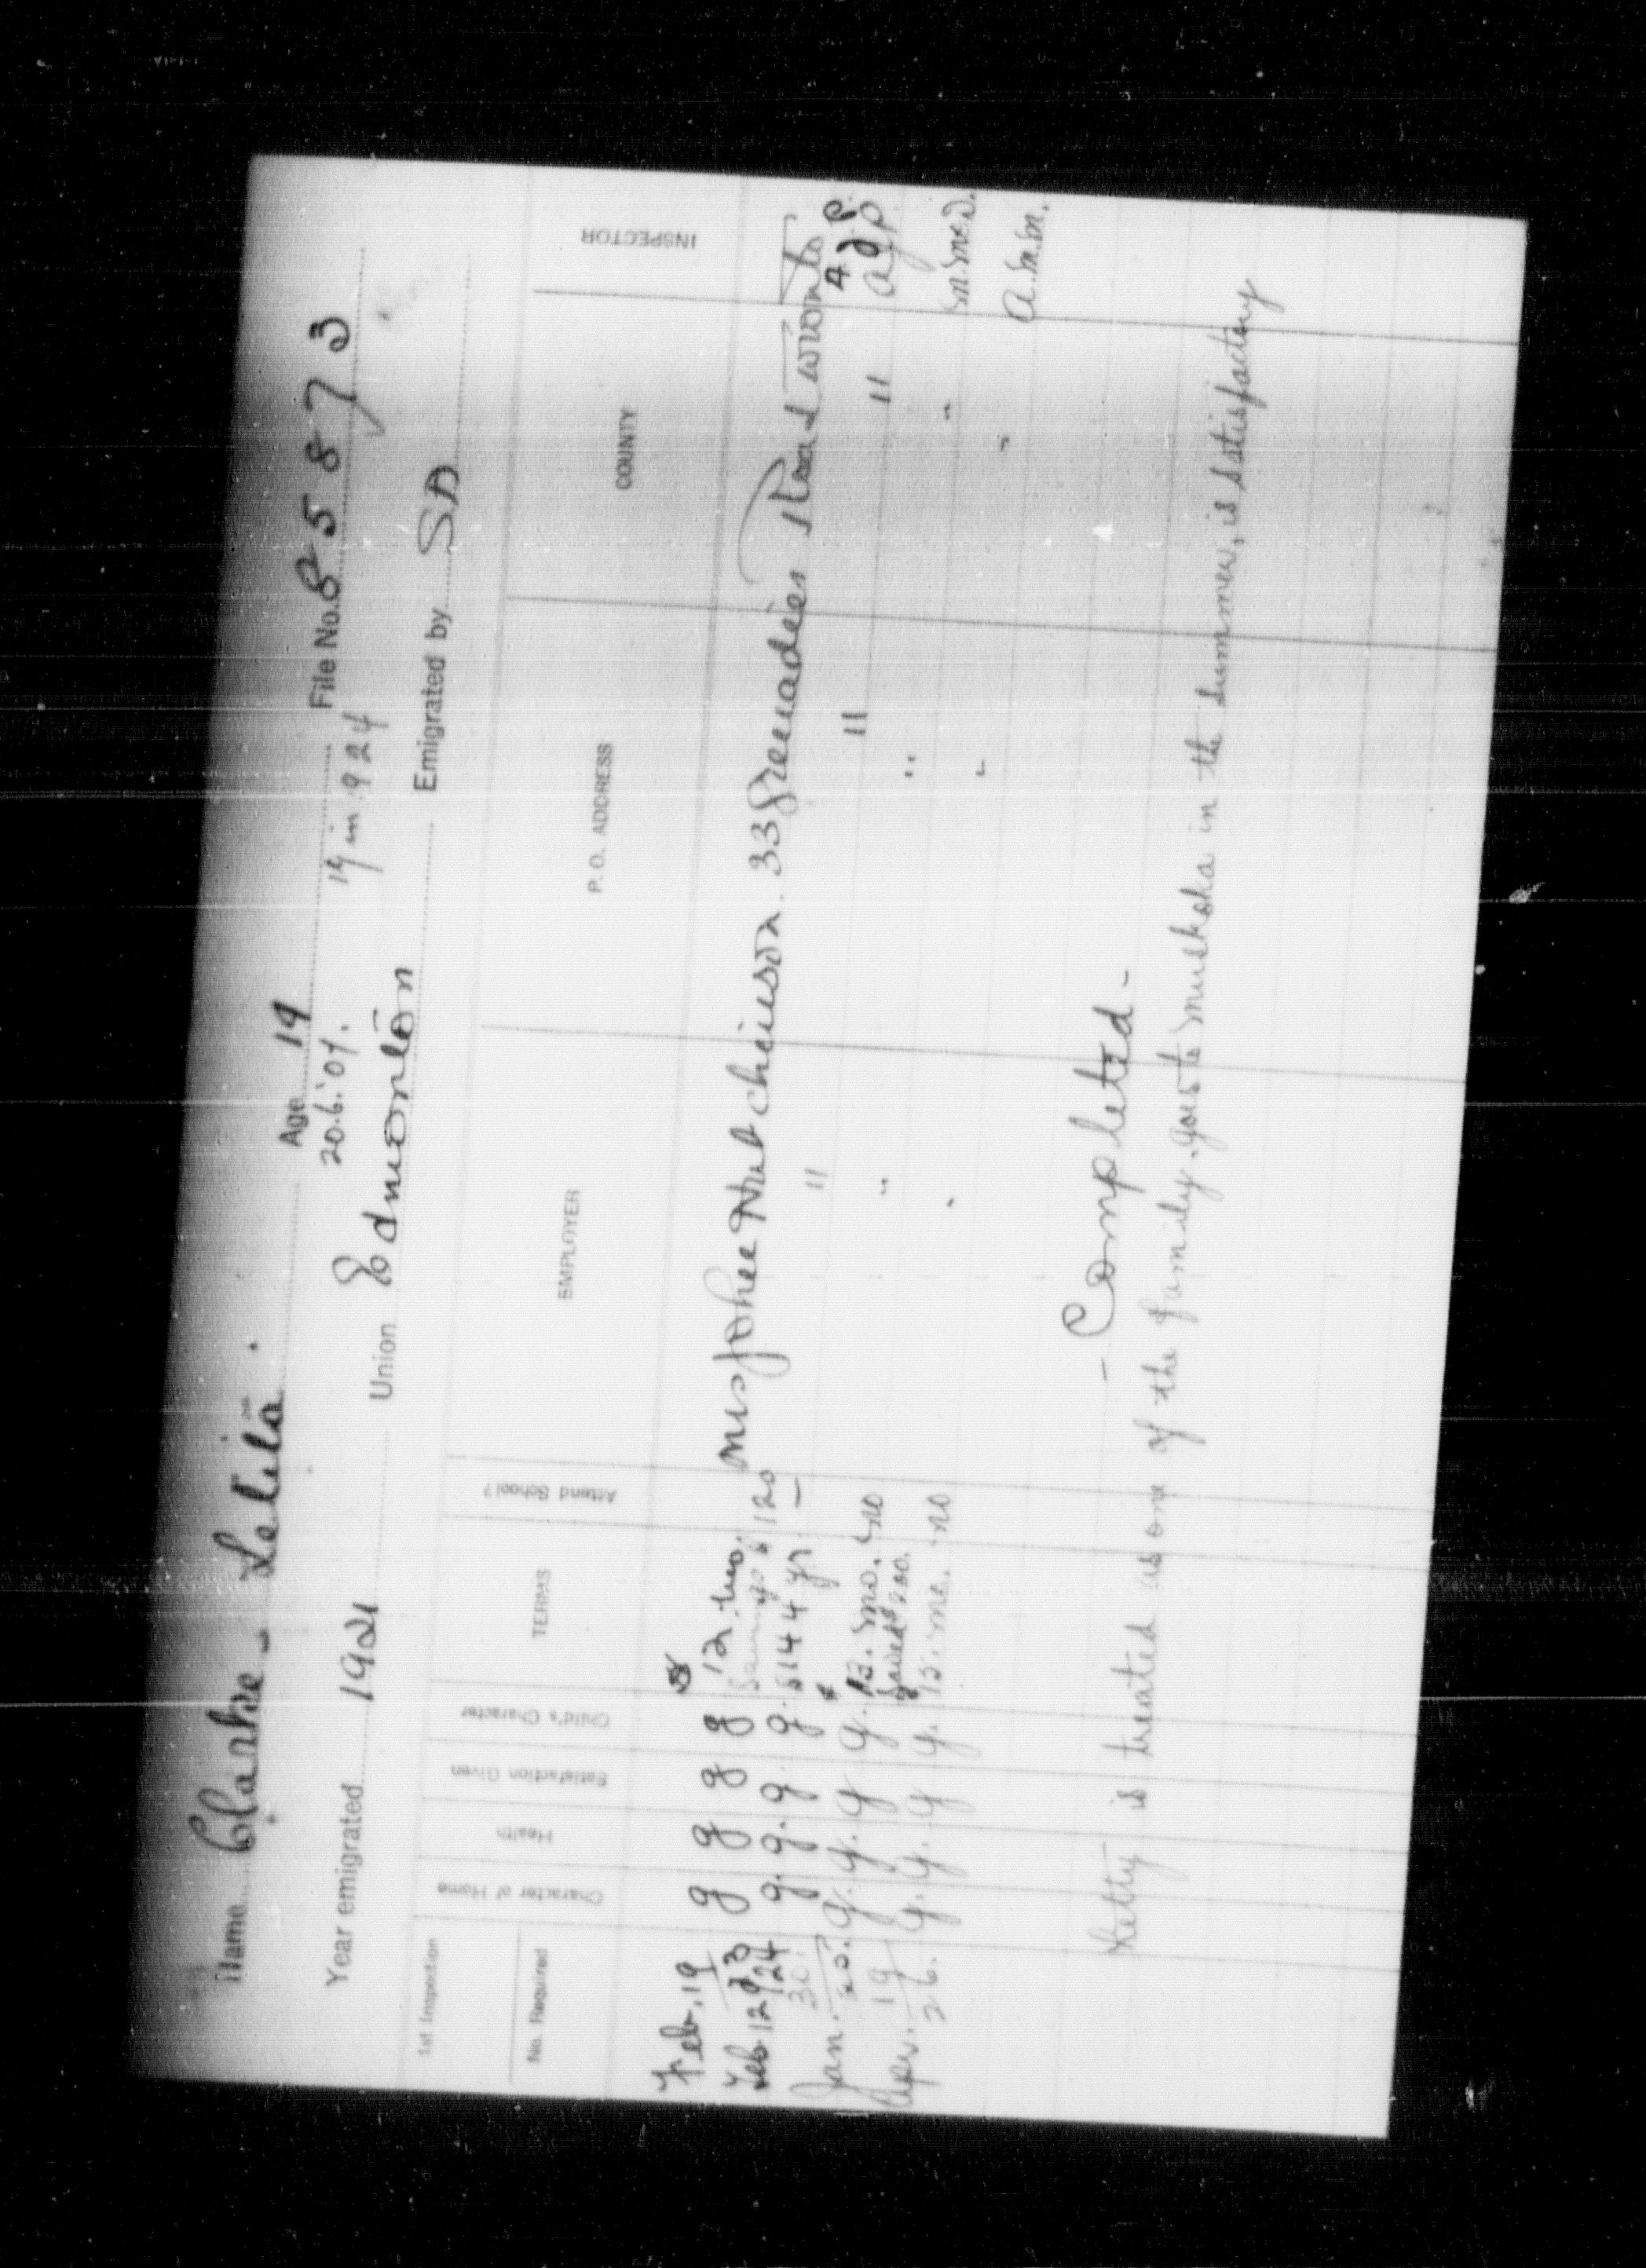 Name Clarke - Letitia. Age 14
20.6.'07. 17 in 924 File No. 85873
Year emigrated 1921 Union Edmonton Emigrated by SA
1st Inspection
No. Required Character of Home Health Satisfaction Given Child's Character TERMS Attend School? EMPLOYER P.O. ADDRESS COUNTY INSPECTOR
Feb. 19/23 g g g g $12. mo. Mrs John Hutchinson. 33 Grenadier Road Toronto
Savings $120
Feb 12/24 g. g. g. g. $144 yr — " " " A J P
Jan. 30./25. g. g. g g. 13. mo. no " " " M. McD.
Saved $200.
Apr. 19/26. g. g. g g. 15. mo. no " " " A.M.M.
- Completed -
Letty is treated as one of the family. goes to Muskoka in the summer, is satisfactory